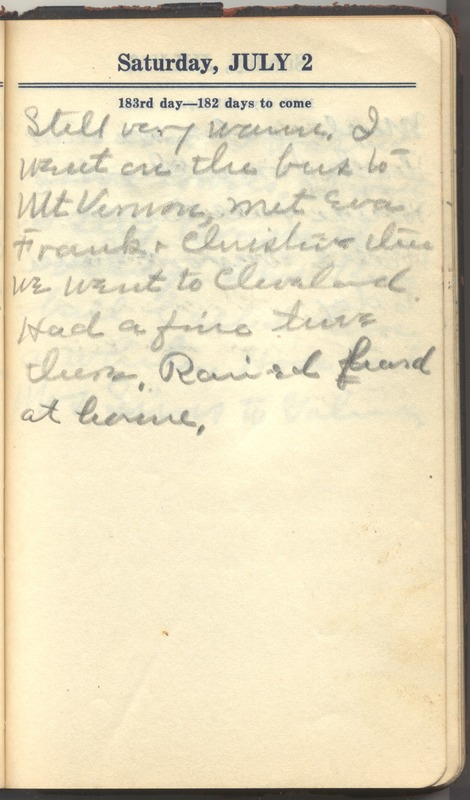 Saturday, JULY 2
183rd day—182 days to come
Still very warm. I
went on the bus to
Mt Vernon, met Eva
Frank & Christine then
we went to Cleveland.
Had a fine time
there. Rained hard
at home.